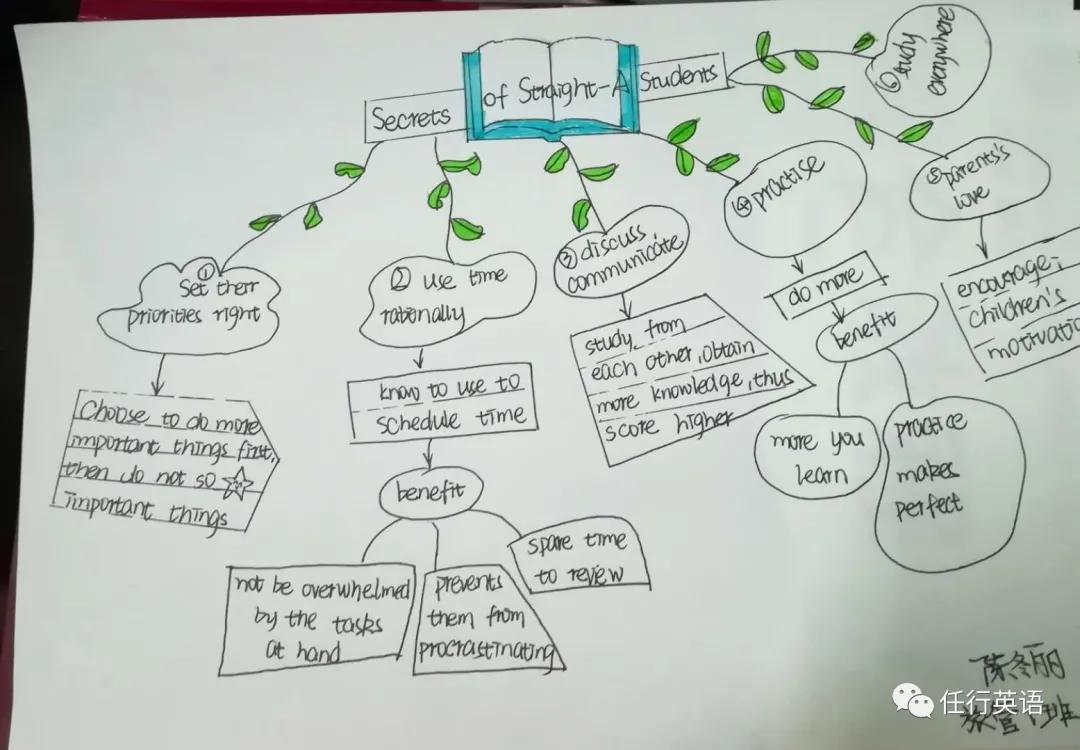 Secrets
of Straight-A
Students
① Set their
priorities right
Choose to do more
important things first,
then do not so
important things
② use time
rationally
know to use to
schedule time
benefit
not be overwhelmed
by the tasks
at hand
prevents
them from
procrastinating
spare time
to review
③ discuss
communicate
study from
each other, obtain
more knowledge, thus
score higher
④ practise
do more
benefit
more you
learn
practice
makes
perfect
⑤ parents's
love
encourage
children's
motivatio
⑥ study
everywhere
陈冬丽
班
任行英语